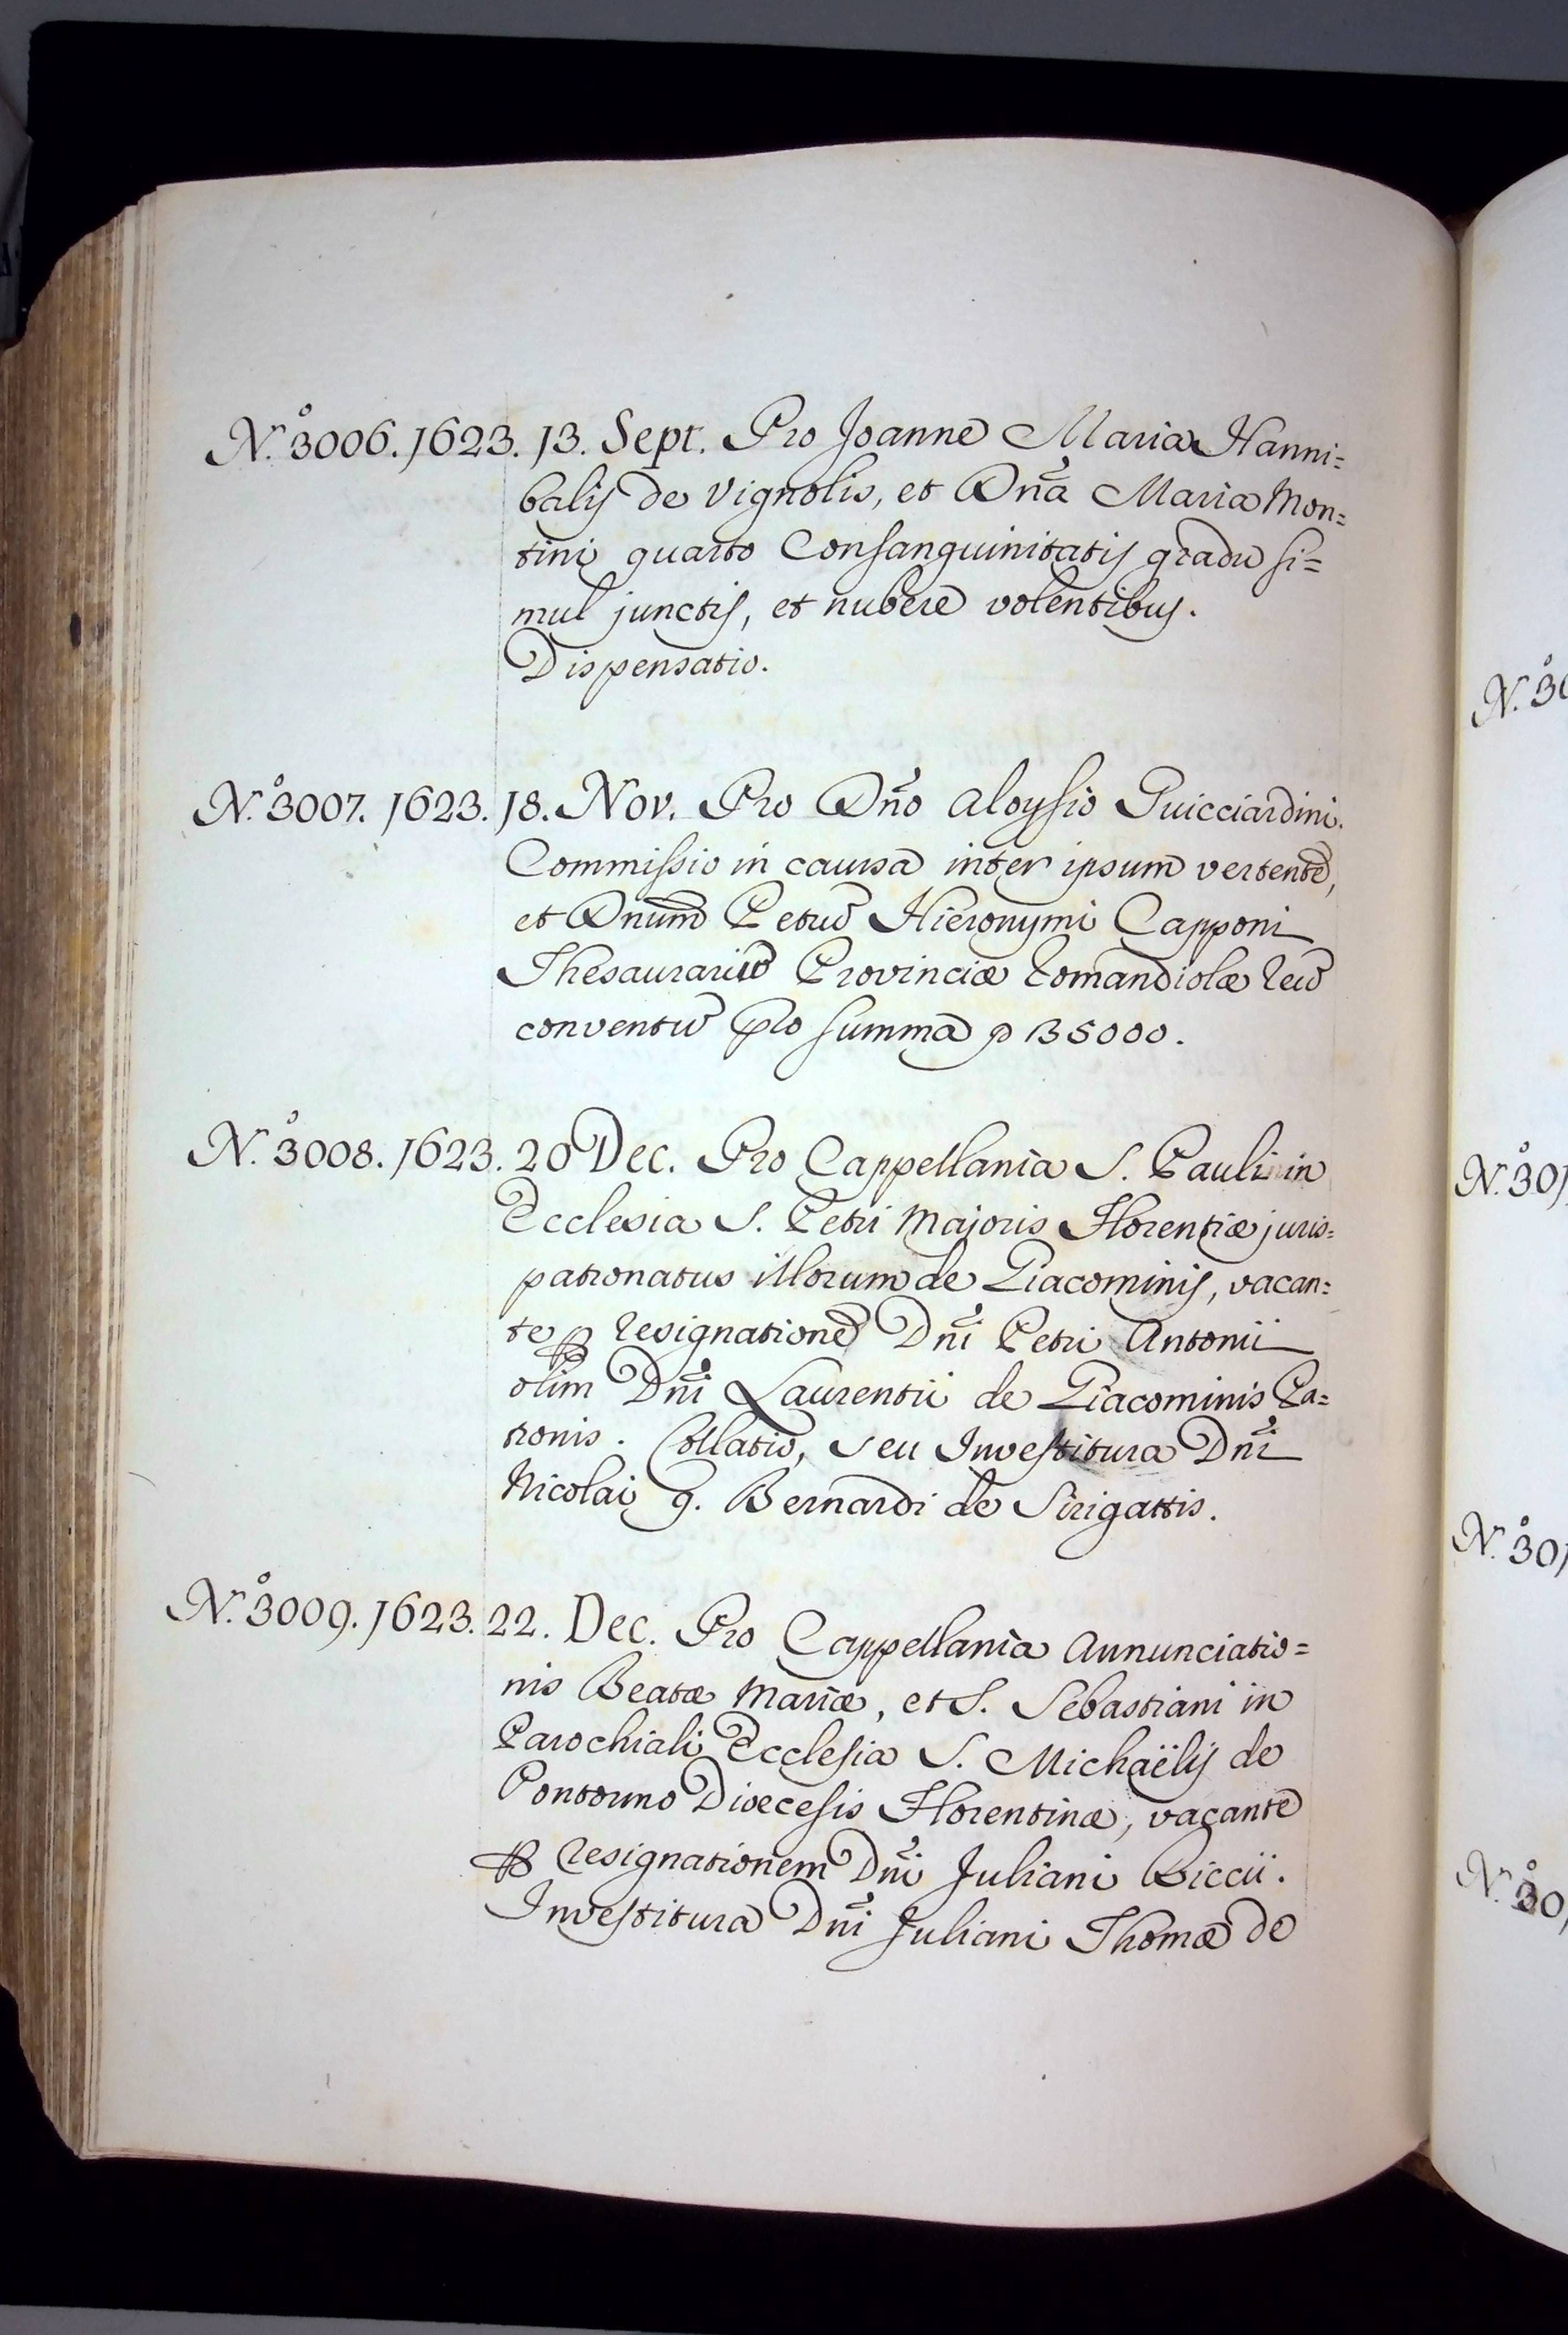 N.º 3006. 1623. 13. Sept. Pro Joanne Maria Hanni=
balis de Vignolis, et Dñã Maria Mon=
tini quarto Consanguinitatis gradu si=
mul junctis, et nubere volentibus.
Dispensatio.
N.º 3007. 1623. 18. Nov. Pro Dño Aloysio Guicciardini.
Commissio in causa inter ipsum vertente,
et Dnum Petrũ Hieronymi Capponi
Thesaurariũ Provinciæ Romandiolæ Reũ
conventũ pro summa 35000.
N.º 3008. 1623. 20 Dec. Pro Cappellania S. Pauli in
Ecclesia S. Petri Majoris Florentiæ juris=
patronatus illorum de Giacominis, vacan=
te ꝑ resignationẽ Dñi Petri Antonii
olim Dñi Laurentii de Giacominis Pa=
tronis. Collatio, seu Investitura Dñi
Nicolai q. Bernardi de Sirigattis.
N.º 3009. 1623. 22. Dec. Pro Cappellania Annunciatio=
nis Beatæ Mariæ, et S. Sebastiani in
Parochiali Ecclesia S. Michaëlis de
Pontorno Diœcesis Florentinæ, vacante
ꝑ resignationem Dñi Juliani Riccii.
Investitura Dñi Juliani Thomæ de
N.º 30
N.º 301
N.º 301
N.º 30